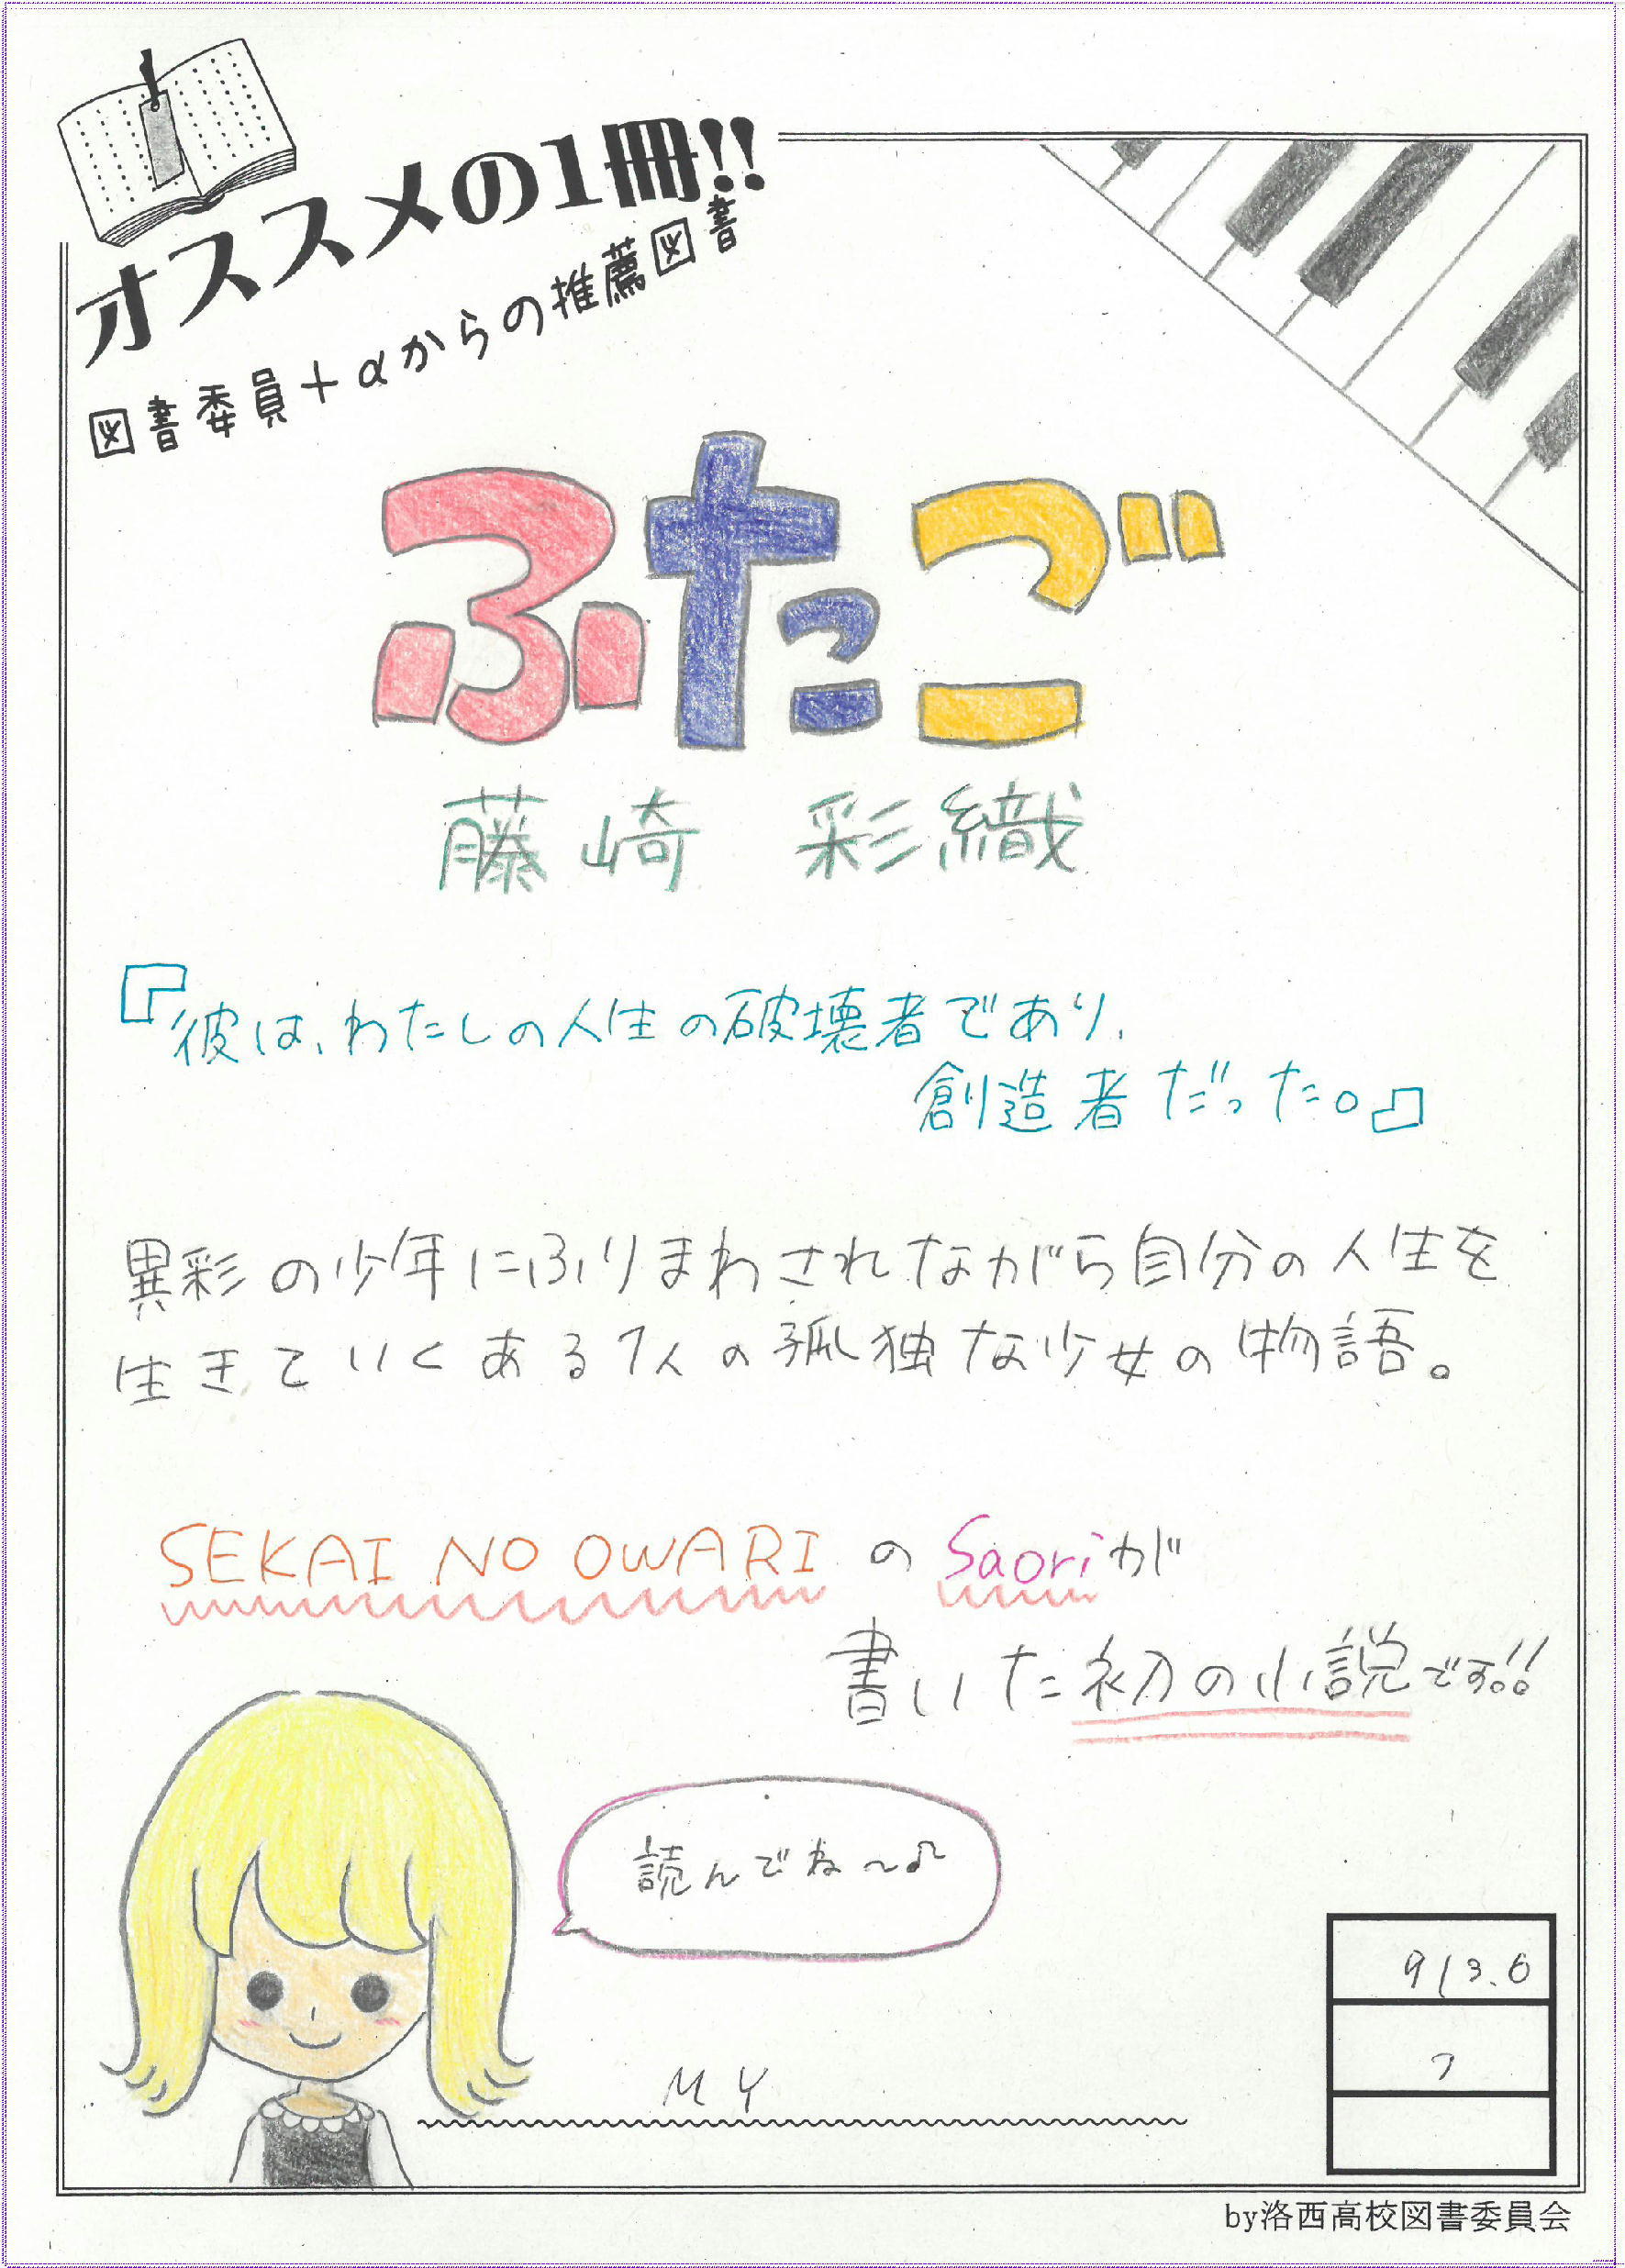 オススメの1冊!!
図書委員+αからの推薦図書
ふたご
藤崎 彩織
『彼は、わたしの人生の破壊者であり、
創造者だった。』
異彩の少年にふりまわされながら自分の人生を
生きていくある1人の孤独な少女の物語。
SEKAI NO OWARI の Saoriが
書いた初の小説です!!
読んでね～♪
MY
913.6
フ
by洛西高校図書委員会